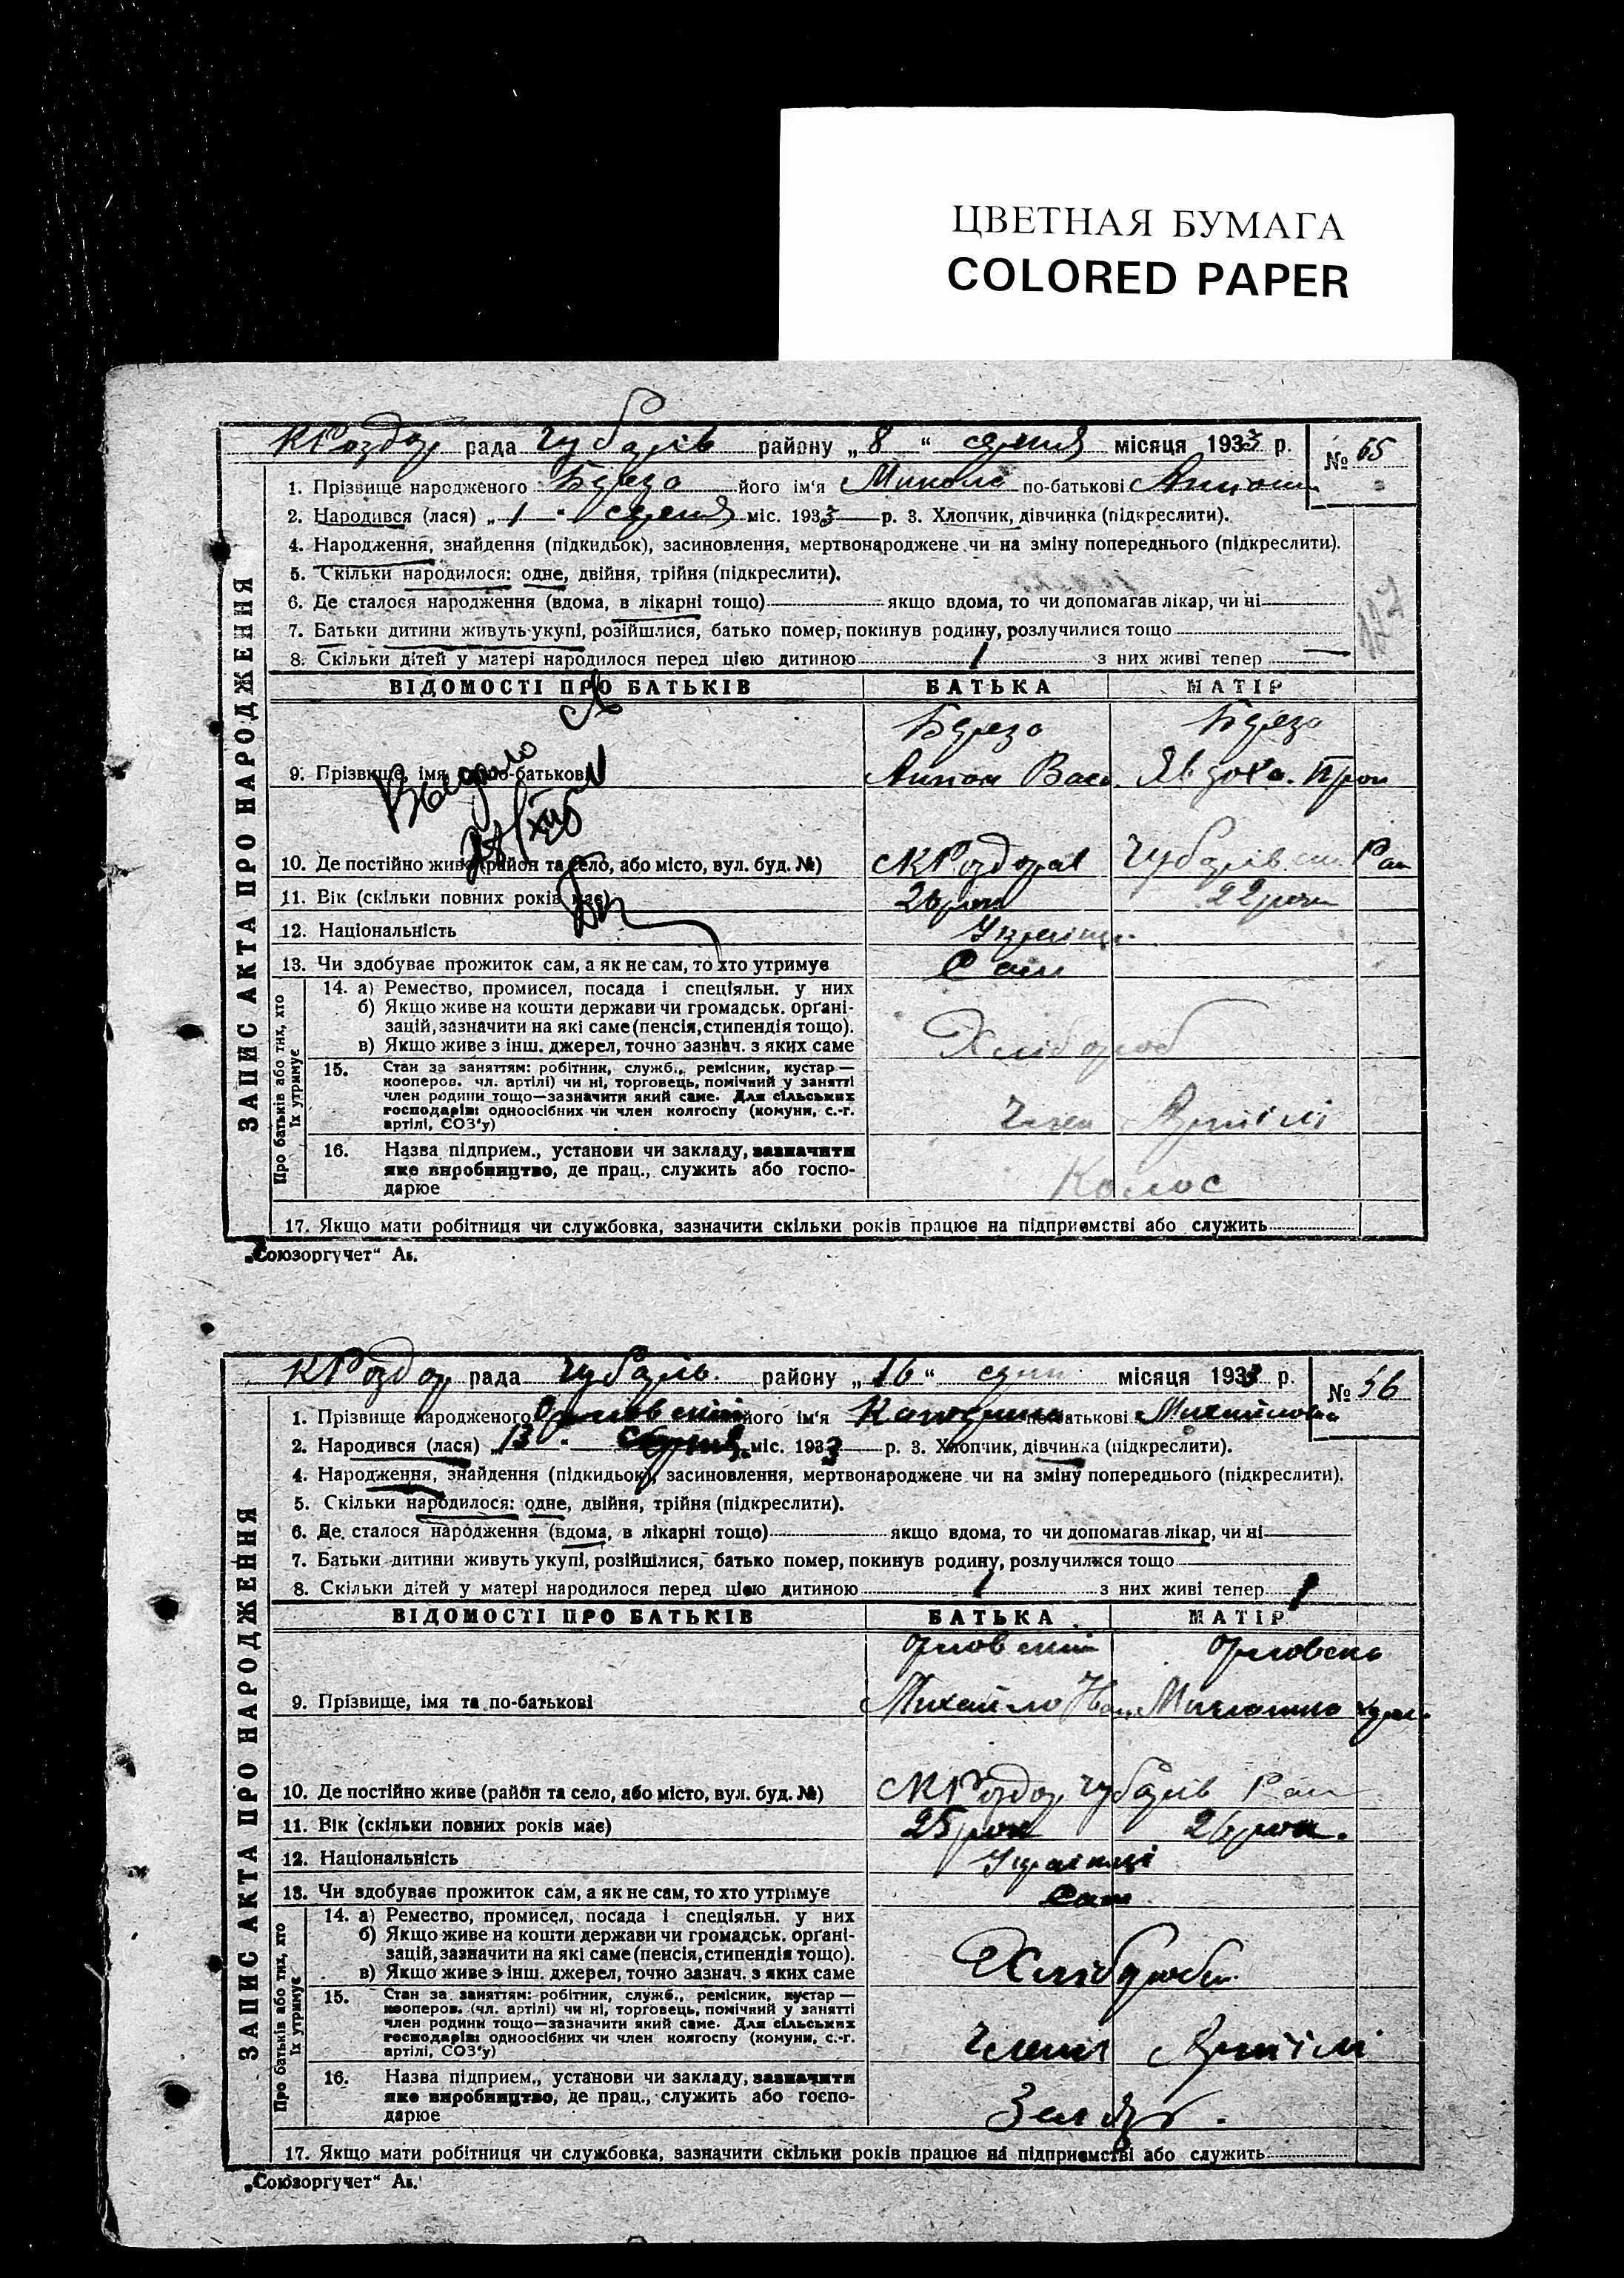 ЦВЕТНАЯ БУМАГА
COLORED PAPER
КРоздор рада Чубарів району „8“ серпня місяця 1933 р. № 65
1. Прізвище народженого Береза його ім'я Микола по-батькові Антон
2. Народився (лася) „1“ серпня міс. 1933 р. 3. Хлопчик, дівчинка (підкреслити).
4. Народження, знайдення (підкидьок), засиновлення, мертвонароджене чи на зміну попереднього (підкреслити).
5. Скільки народилося: одне, двійня, трійня (підкреслити).
6. Де сталося народження (вдома, в лікарні тощо) якщо вдома, то чи допомагав лікар, чи ні
7. Батьки дитини живуть укупі, розійшлися, батько помер, покинув родину, розлучилися тощо
8. Скільки дітей у матері народилося перед цією дитиною 1 з них живі тепер —
ВІДОМОСТІ ПРО БАТЬКІВ БАТЬКА МАТІР
Береза Береза
9. Прізвище, імя та по-батькові Антон Вас. Явдоха. Проп
10. Де постійно живе (район та село, або місто, вул. буд. №) с КРоздорів Чубарівськ. Рай
11. Вік (скільки повних років має) 26 рок 22 роки
12. Національність Українці
13. Чи здобуває прожиток сам, а як не сам, то хто утримує Сам
14. а) Ремество, промисел, посада і спеціяльн. у них
б) Якщо живе на кошти держави чи громадськ. органі-
зацій, зазначити на які саме (пенсія, стипендія тощо).
в) Якщо живе з інш. джерел, точно зазнач. з яких саме
Хлібороб
15. Стан за заняттям: робітник, служб., ремісник, кустар —
кооперов. чл. артілі) чи ні, торговець, помічний у занятті
член родини тощо—зазначити який саме. Для сільських
господарів: одноосібних чи член колгоспу (комуни, с.-г.
артілі, СОЗ'у)
Член Артілі
16. Назва підприєм., установи чи закладу, зазначити
яке виробництво, де прац., служить або госпо-
дарює
Колос
17. Якщо мати робітниця чи службовка, зазначити скільки років працює на підприємстві або служить
ЗАПИС АКТА ПРО НАРОДЖЕННЯ
Про батьків або тих, хто
їх утримує
„Союзоргучет“ Ав.
КРоздор рада Чубарів. району „16“ серп місяця 1933 р. № 56
1. Прізвище народженого Орловський його ім'я Катерина по-батькові Михайловна
2. Народився (лася) „13“ серпня міс. 1933 р. 3. Хлопчик, дівчинка (підкреслити).
4. Народження, знайдення (підкидьок), засиновлення, мертвонароджене чи на зміну попереднього (підкреслити).
5. Скільки народилося: одне, двійня, трійня (підкреслити).
6. Де сталося народження (вдома, в лікарні тощо) якщо вдома, то чи допомагав лікар, чи ні
7. Батьки дитини живуть укупі, розійшлися, батько помер, покинув родину, розлучилися тощо
8. Скільки дітей у матері народилося перед цією дитиною 1 з них живі тепер 1
ВІДОМОСТІ ПРО БАТЬКІВ БАТЬКА МАТІР
Орловський Орловська
9. Прізвище, імя та по-батькові Михайло Іван
10. Де постійно живе (район та село, або місто, вул. буд. №) с КРоздор Чубарів Рай
11. Вік (скільки повних років має) 25 рок 26 рок.
12. Національність Українці
13. Чи здобуває прожиток сам, а як не сам, то хто утримує Сам
14. а) Ремество, промисел, посада і спеціяльн. у них
б) Якщо живе на кошти держави чи громадськ. органі-
зацій, зазначити на які саме (пенсія, стипендія тощо).
в) Якщо живе з інш. джерел, точно зазнач. з яких саме
Хлібороби
15. Стан за заняттям: робітник, служб., ремісник, кустар —
кооперов. (чл. артілі) чи ні, торговець, помічний у занятті
член родини тощо—зазначити який саме. Для сільських
господарів: одноосібних чи член колгоспу (комуни, с.-г.
артілі, СОЗ'у)
Члени Артілі
16. Назва підприєм., установи чи закладу, зазначити
яке виробництво, де прац., служить або госпо-
дарює
17. Якщо мати робітниця чи службовка, зазначити скільки років працює на підприємстві або служить
ЗАПИС АКТА ПРО НАРОДЖЕННЯ
Про батьків або тих, хто
їх утримує
„Союзоргучет“ Ав.